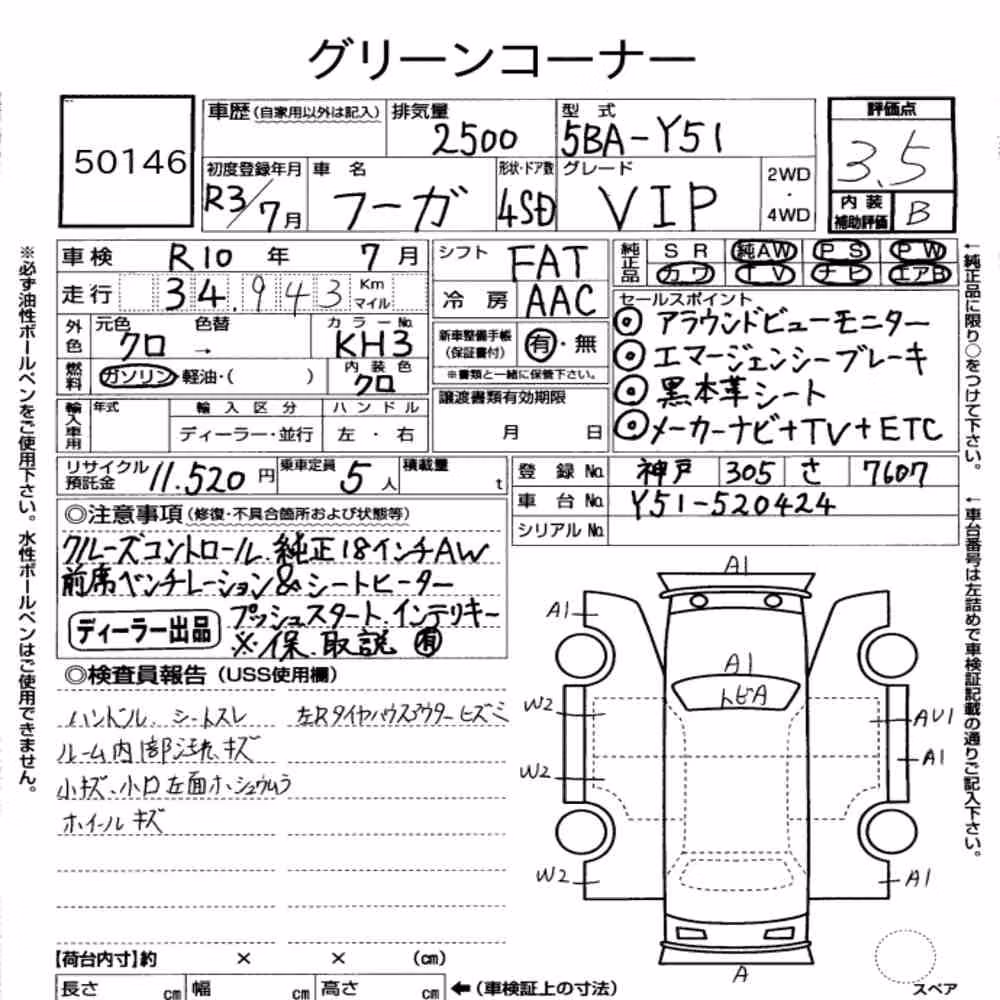 グリーンコーナー
50146
車歴(自家用以外は記入)
排気量 2500
型式 5BA-Y51
評価点 3.5
初度登録年月 R3/7月
車名 フーガ
形状・ドア数 4SD
グレード VIP
2WD・4WD
内装補助評価 B
車検 R10年 7月
シフト FAT
純正品 SR 純AW PS PW
カワ TV ナビ エアB
走行 34,943 Km マイル
冷房 AAC
セールスポイント
◎アラウンドビューモニター
◎エマージェンシーブレーキ
◎黒本革シート
◎メーカーナビ+TV+ETC
外色 元色 クロ → 色替
カラーNo. KH3
新車整備手帳(保証書付) 有・無
※書類と一緒に保管下さい。
燃料 ガソリン・軽油・( )
内装色 クロ
譲渡書類有効期限
月 日
輸入車用 年式 輸入区分 ハンドル
ディーラー・並行 左・右
リサイクル預託金 11.520円
乗車定員 5人
積載量 t
登録No. 神戸 305 さ 7607
車台No. Y51-520424
シリアルNo.
◎注意事項(修復・不具合箇所および状態等)
クルーズコントロール.純正18インチAW
前席ベンチレーション&シートヒーター
ディーラー出品 プッシュスタート.インテリキー
※保.取説 有
◎検査員報告(USS使用欄)
ハンドル、シートスレ 左Rタイヤハウスアウターヒズミ
ルーム内部汚れ、キズ
小キズ、小凹 左面ホシュウムラ
ホイールキズ
A1
A1
A1
トビA
W2
AU1
W2
A1
W2
A1
A
スペア
【荷台内寸】約 × × (cm)
長さ cm 幅 cm 高さ cm ←(車検証上の寸法)
※必ず油性ボールペンをご使用下さい。水性ボールペンはご使用できません。
←純正品に限り○をつけて下さい。
←車台番号は左詰めで車検証記載の通りご記入下さい。